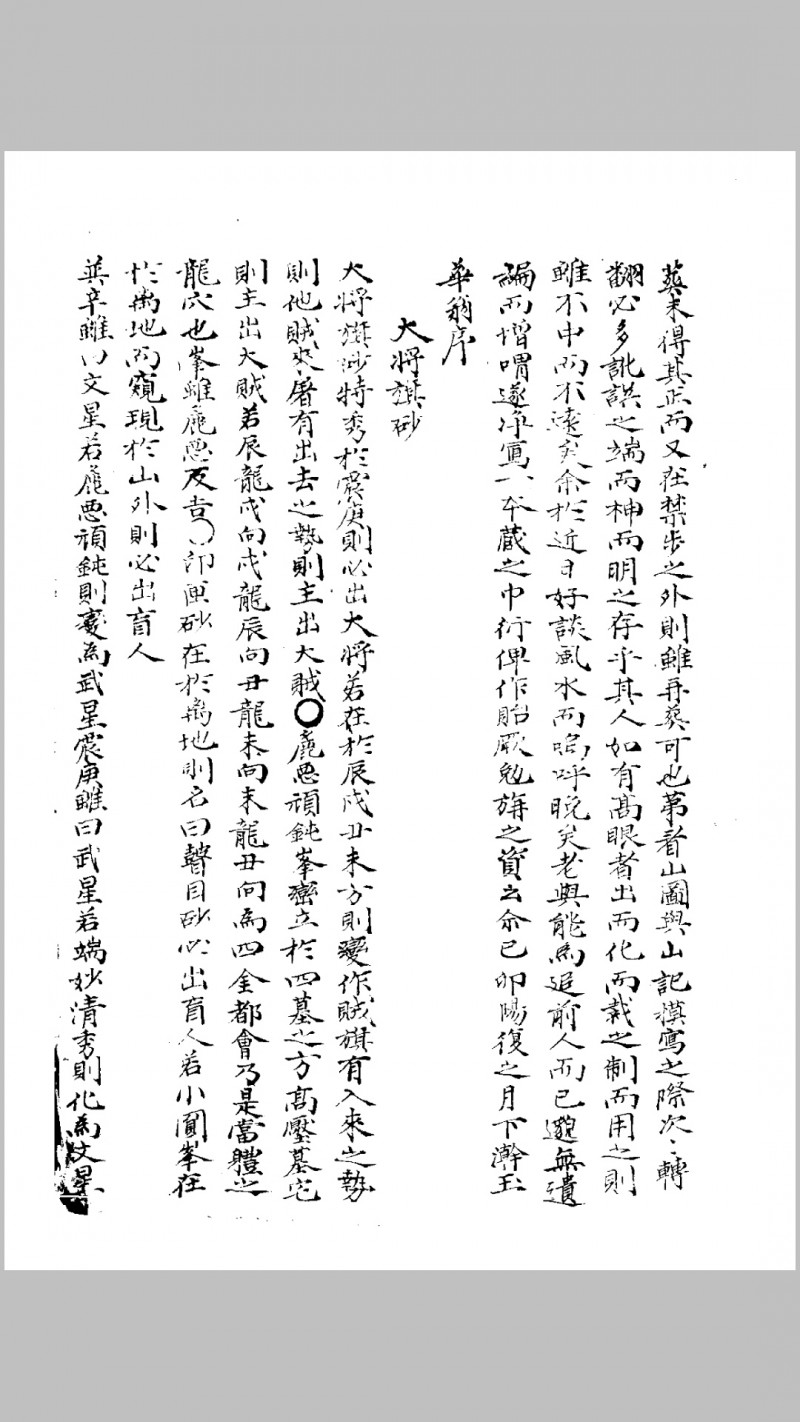 葬未得其正而又在禁步之外則雖再葬可也第看山圖與山記摸寫之際次〻轉
翻必多訛誤之端而神而明之存乎其人如有高眼者出而化而裁之制而用之則
雖不中而不遠矣余於近日好談風水而嗚呼晚矣老與能為追前人而已邈無遺
編而增喟遂净寫一本蔵之巾衍俾作貽厥勉旃之資云尒己卯陽復之月下瀚玉
華翁序
大將旗砂
大將旗砂特秀於震庚則必出大將若在於辰戌丑未方則變作賊旗有入來之勢
則他賊來屠有出去之勢則主出大賊〇麁悪頑鈍峯巒立於四墓之方高壓墓宅
則主出大賊若辰龍戌向戌龍辰向丑龍未向未龍丑向為四金都會乃是當軆之
龍穴也峯雖麁悪反吉〇印匣砂在於离地則名曰瞽目砂必出盲人若小圓峯在
於离地而窺現於山外則必出盲人
巽辛雖曰文星若麁悪頑鈍則変為武星震庚雖曰武星若端妙清秀則化為文星